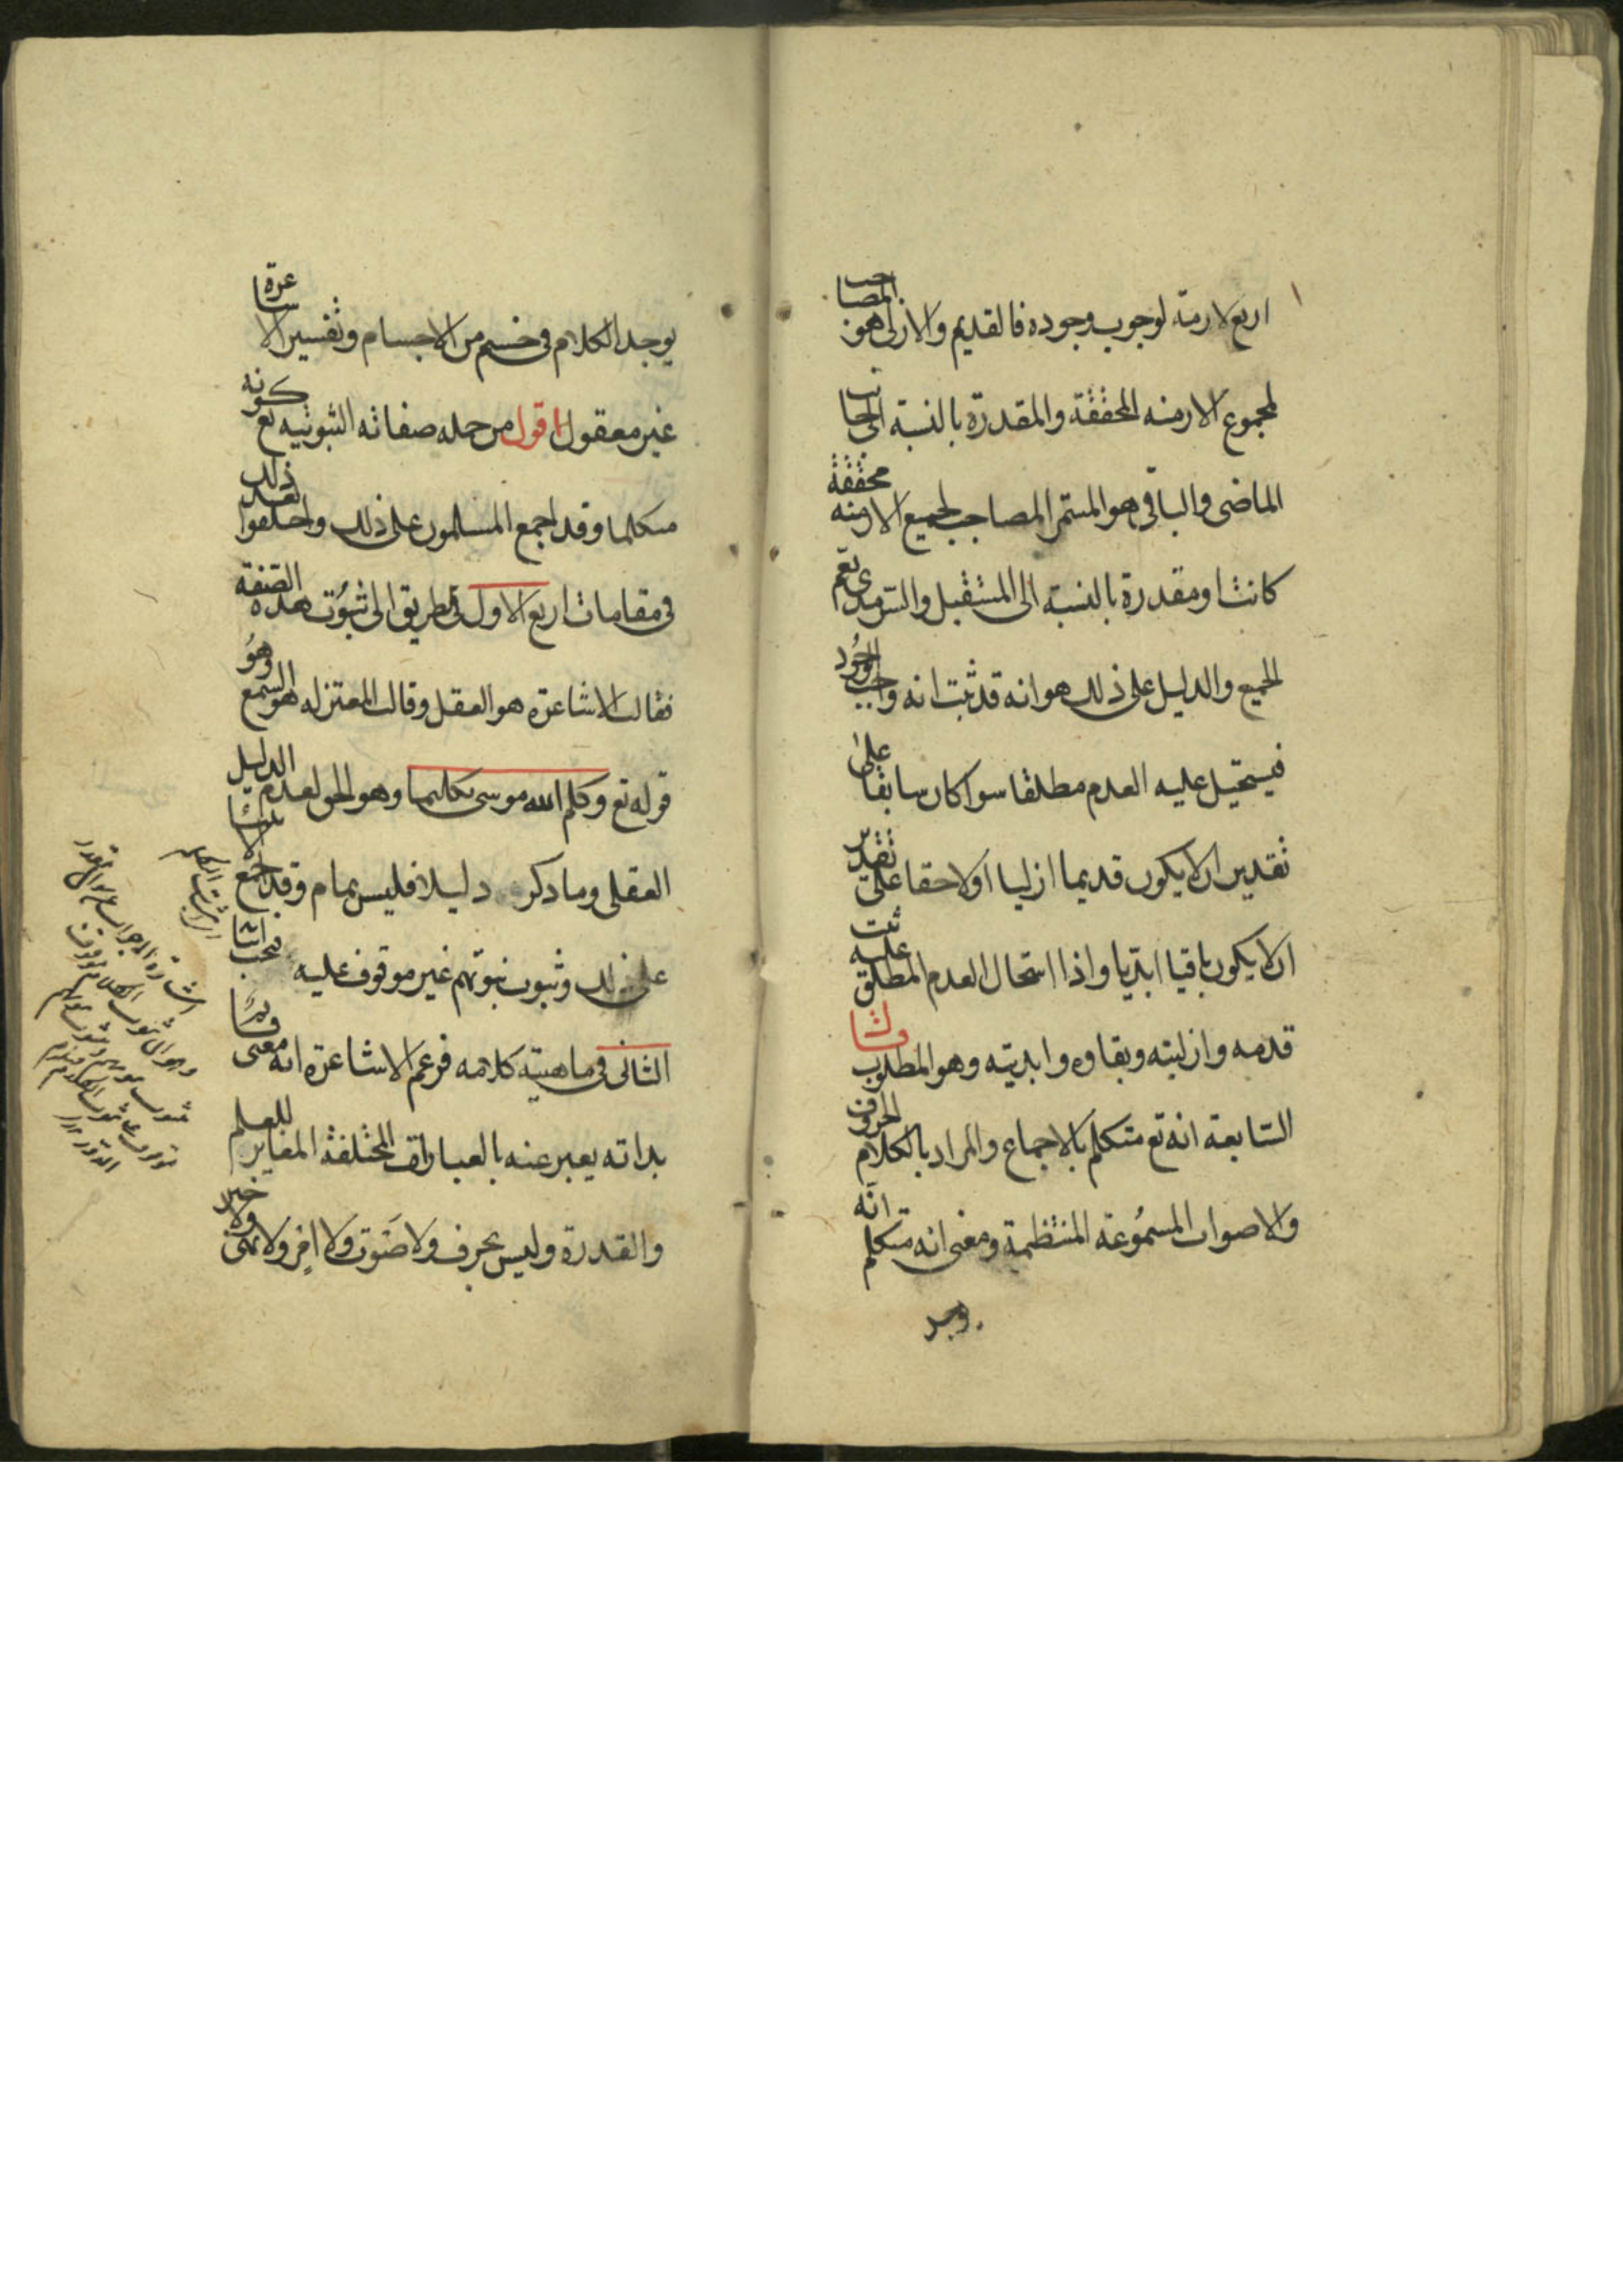 اربع لازمة لوجوب وجوده فالقديم والازلى هو المصاحب
لمجموع الازمنه المحققة والمقدرة بالنسبة الى جانب
الماضى والباقى هو المستمر المصاحب لجميع الازمنه محققة
كانت او مقدرة بالنسبه الى المستقبل والسرمدى يعم
الجميع والدليل على ذلك هو انه قد ثبت انه واجب الوجُود
فيستحيل عليه العدم مطلقا سوا كان سابقا على
تقدير ان لا يكون قديما ازليا او لاحقا على تقدير
ان لا يكون باقيا ابديا واذا استحال العدم المطلق عليه ثبت
قدمه وازليته وبقاوه وابديته وهو المطلوب قال
السّابعة انه تع متكلم بالاجماع والمراد بالكلام الحروف
والاصوات المسمُوعة المنتظمة ومعنى انه متكلم انّه
يوجد
يوجد الكلام فى جسم من الاجسام وتفسير الاشاعرة
غير معقول اقول من جمله صفاته الثبوتيه تع كونه
متكلما وقد اجمع المسلمون على ذلك واختلفوا بعد ذلك
فى مقامات اربع الاول فى طريق الى ثبُوت هذه الصّفة
فقالت الاشاعرة هو العقل وقالت المعتزله هو السّمع وهُو
قوله تع وكلم الله موسى تكليما وهو الحق لعدم الدليل
العقلى وما ذكر دليلا فليس بتمام وقد اجمع الانبيا
على ذلك وثبوت نبوتهم غير موقوف عليه فيجب اثباته
الثانى فى ماهيّة كلامه فزعم الاشاعرة انه معنى قديم
بذاته يعبر عنه بالعبارات المختلفة المغاير للعلم
والقدرة وليس بحرف ولا صَوت ولا امر ولا نهى ولا خبر